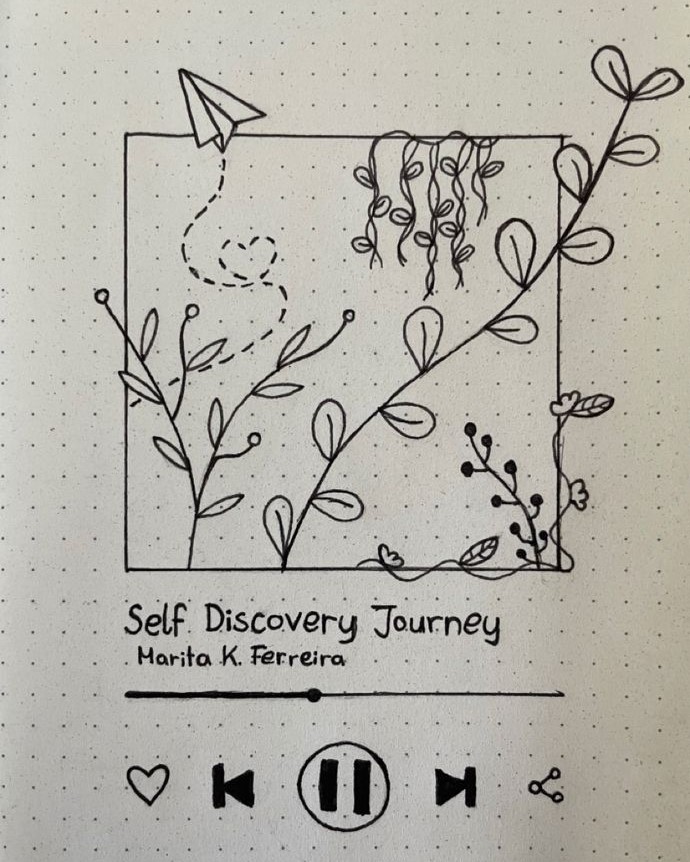 Self Discovery Journey
Marita K. Ferreira